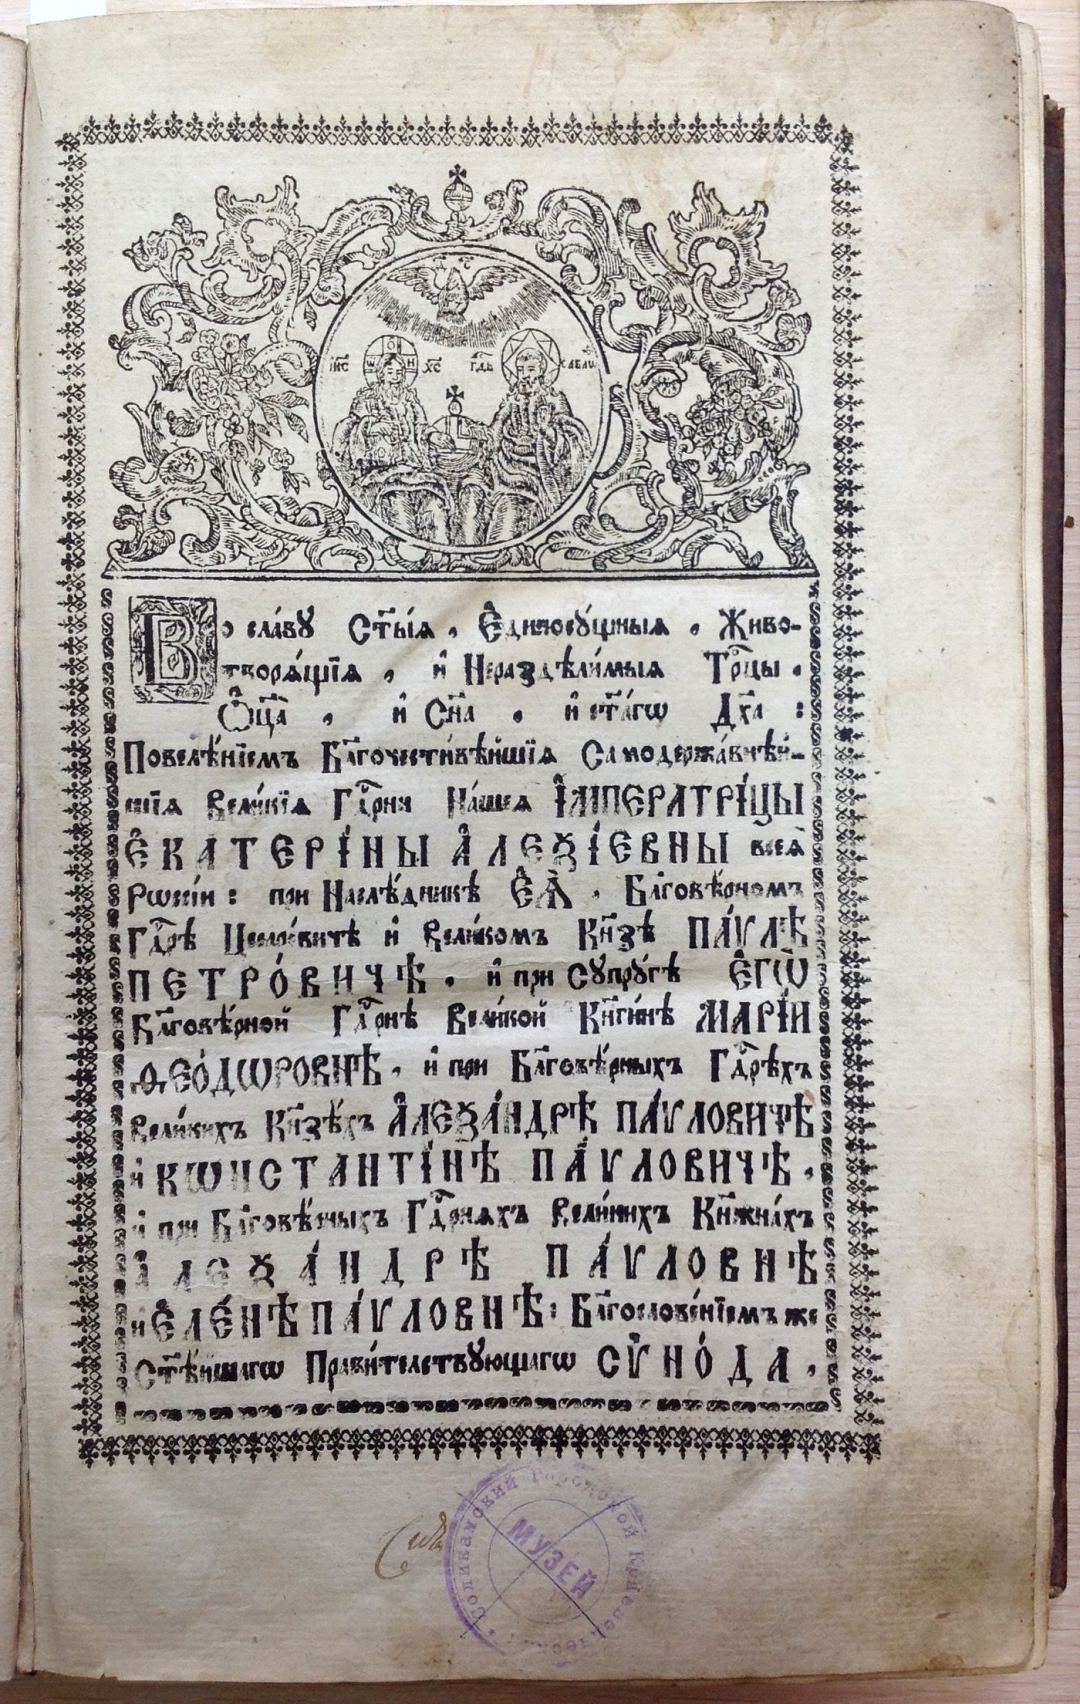 І҆И҃С Х҃С Гд҃ь Саваѡ҃
Во сла́вꙋ Ст҃ы́ѧ , Є҆диносꙋ́щныѧ , Живо-
творѧ́щїѧ , и҆ Нераздѣли́мыѧ Тр҃цы ,
Ѻ҆ц҃а̀ , и҆ Сн҃а , и҆ ст҃а́гѡ Дх҃а :
Повелѣ́нїемъ Бл҃гочести́вѣйшїѧ Самодержа́внѣй-
шїѧ Вели́кїѧ Гд҃рни На́шеѧ І҆МПЕРАТРІ́ЦЫ
Є҆КАТЕРІ́НЫ А҆ЛЕѮІ́ЕВНЫ всеѧ̀
Рѡссі́и : при Наслѣ́дникѣ Є҆Ѧ̀ , Бл҃говѣ́рномъ
Гд҃рѣ Цесаре́вичѣ и҆ Вели́комъ Кн҃зѣ ПА́ѴЛѢ
ПЕТРО́ВИЧѢ , и҆ при Сꙋпрꙋ́гѣ Є҆ГѠ̀
Бл҃говѣ́рной Гд҃рнѣ Вели́кой Кн҃ги́нѣ МАРІ́И
Ѳ҆ЕО́ДѠРОВНѢ , и҆ при Бл҃говѣ́рныхъ Гд҃рѣхъ
Вели́кихъ Кн҃зѣ́хъ А҆ЛЕѮА́НДРѢ ПА́ѴЛОВИЧѢ
и҆ КѠНСТАНТІ́НѢ ПА́ѴЛОВИЧѢ ,
и҆ при Бл҃говѣ́рныхъ Гд҃рнѧхъ Вели́кихъ Кн҃жна́хъ
А҆ЛЕѮА́НДРѢ ПА́ѴЛОВНѢ
и҆ Є҆ЛЕ́НѢ ПА́ѴЛОВНѢ : Бл҃гослове́нїемъ же
Ст҃ѣ́йшагѡ Прави́телствꙋющагѡ СѴ҆НО́ДА ,
Соликамский Городской Краевед
МУЗЕЙ